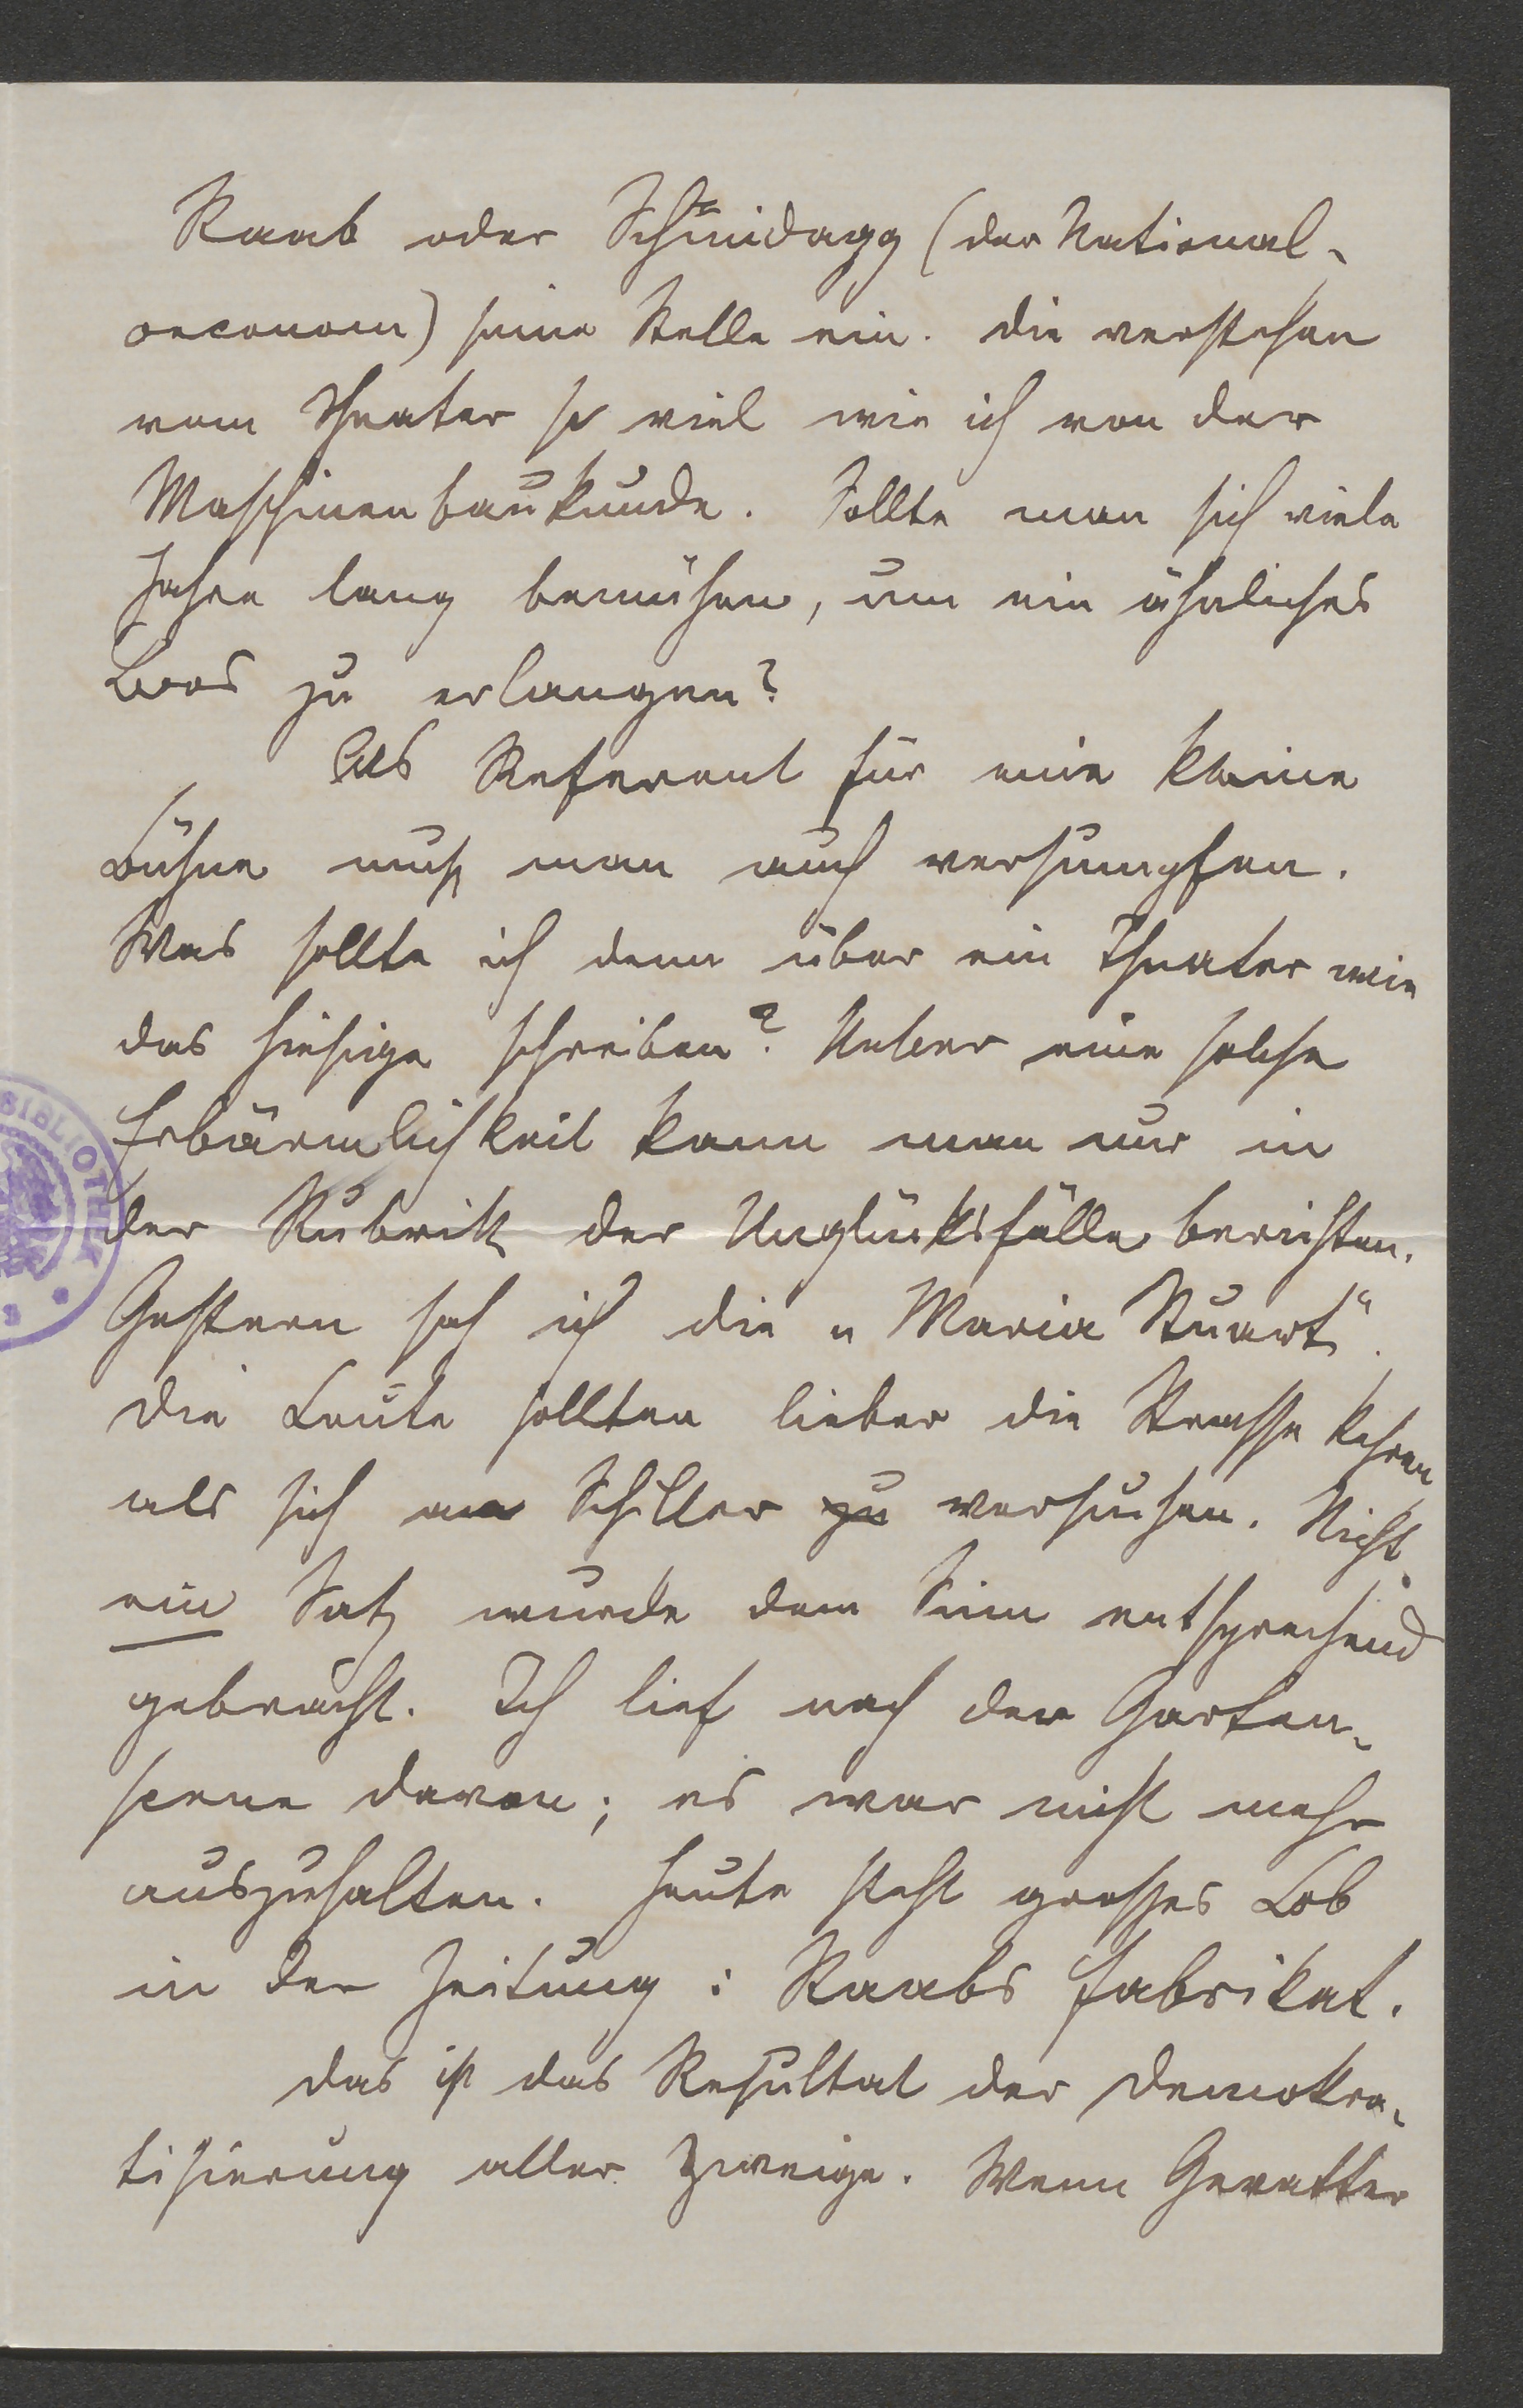 Raab oder (der National-
oeconom) seine Stelle ein. Die verstehen
vom Theater so viel wie ich von der
Maschinenbaukunde. Sollte man sich viele
Jahre lang bemühen, um ein ähnliches
Loos zu erlangen?
Als Referent für eine kleine
Bühne muß man auch versumpfen.
Was sollte ich denn über ein Theater wie
das hiesige schreiben? Ueber eine solche
Erbärmlichkeit kann man nur in
der Rubrik der Unglücksfälle berichten.
Gestern sah ich die „Maria Stuart“.
Die Leute sollten lieber die Strasse kehren
als sich an Schiller zu versuchen. Nicht
ein Satz wurde dem Sinn entsprechend
gebracht. Ich lief nach der Garten-
scene davon; es war nicht mehr
auszuhalten. Heute steht grosses Lob
in der Zeitung: Raabs Fabrikat.
Das ist das Resultat der Demokra-
tisierung aller Zweige. Wenn Gevatter
BIBLIOTHEK